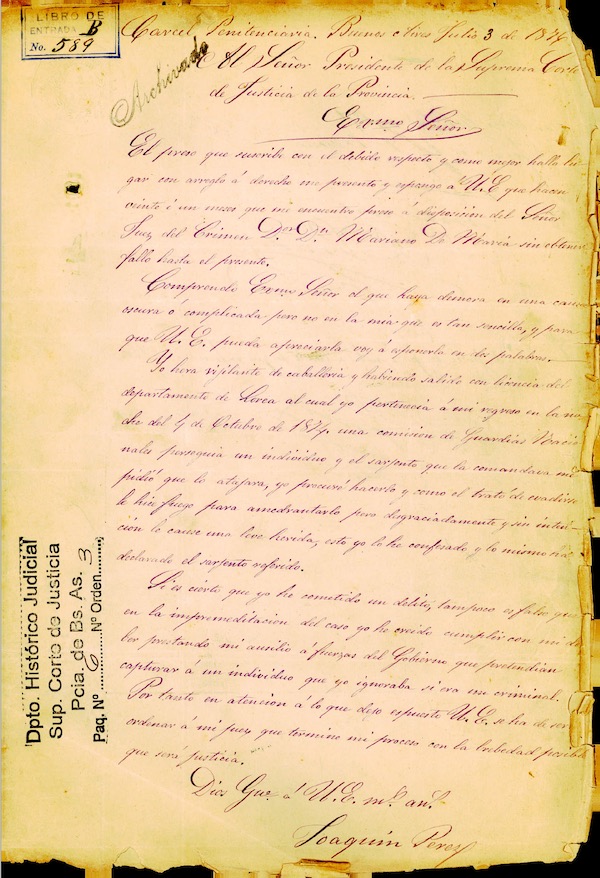 LIBRO DE
ENTRADA B
No. 589
Archivado
Carcel Penitenciaria. Buenos Aires Julio 3 de 187
Al Señor Presidente de la Suprema Corte
de Justicia de la Provincia.
Exmo Señor
El preso que suscribe con el debido respeto y como mejor halla lu
gar con arreglo á derecho me presento y espongo a U.E que hacen
veinte é un meses que mi encuentro preso á disposicion del Señor
Juez del Crimen Dor Dn Mariano De Maria sin obtener
fallo hasta el presente.
Comprendo Exmo Señor el que haya demora en una causa
oscura ó complicada pero no en la mia que es tan sencilla, y para
que U. E. pueda apreciarla voy á esponerla en dos palabras.
Yo hera vijilante de caballeria y habiendo salido con licencia del
departamento de Lorea al cual yo pertenecia á mi regreso en la no
che del 4 de Octubre de 1874. una comicion de Guardias Nacio
nales perseguia un individuo y el sarjento que la comandava me
pidió que lo atajara, yo procuré hacerlo y como el trató de evadirse
le hice fuego para amedrantarlo pero desgraciadamente y sin inten
cion le cause una leve herida, esto yo lo he confesado, y lo mismo
declarado el sarjento referido.
Si es cierto que yo he cometido un delito, tampoco es falso que
en la impremeditacion del caso yo he creido cumplir con mi de
ber prestando mi auxilio a fuerzas del Gobierno que pretendian
capturar á un individuo que yo ignoraba si era un criminal.
Por tanto en atencion á lo que dejo espuesto U. E. se ha de ser
ordenar á mi juez que termine mi proceso con la brebedad posible
que será justicia.
Dios Gue. á U. E. ms. as.
Joaquin Perez
Dpto. Histórico Judicial
Sup. Corte de Justicia
Pcia. de Bs. As.
Paq. Nº 6 Nº Orden 3